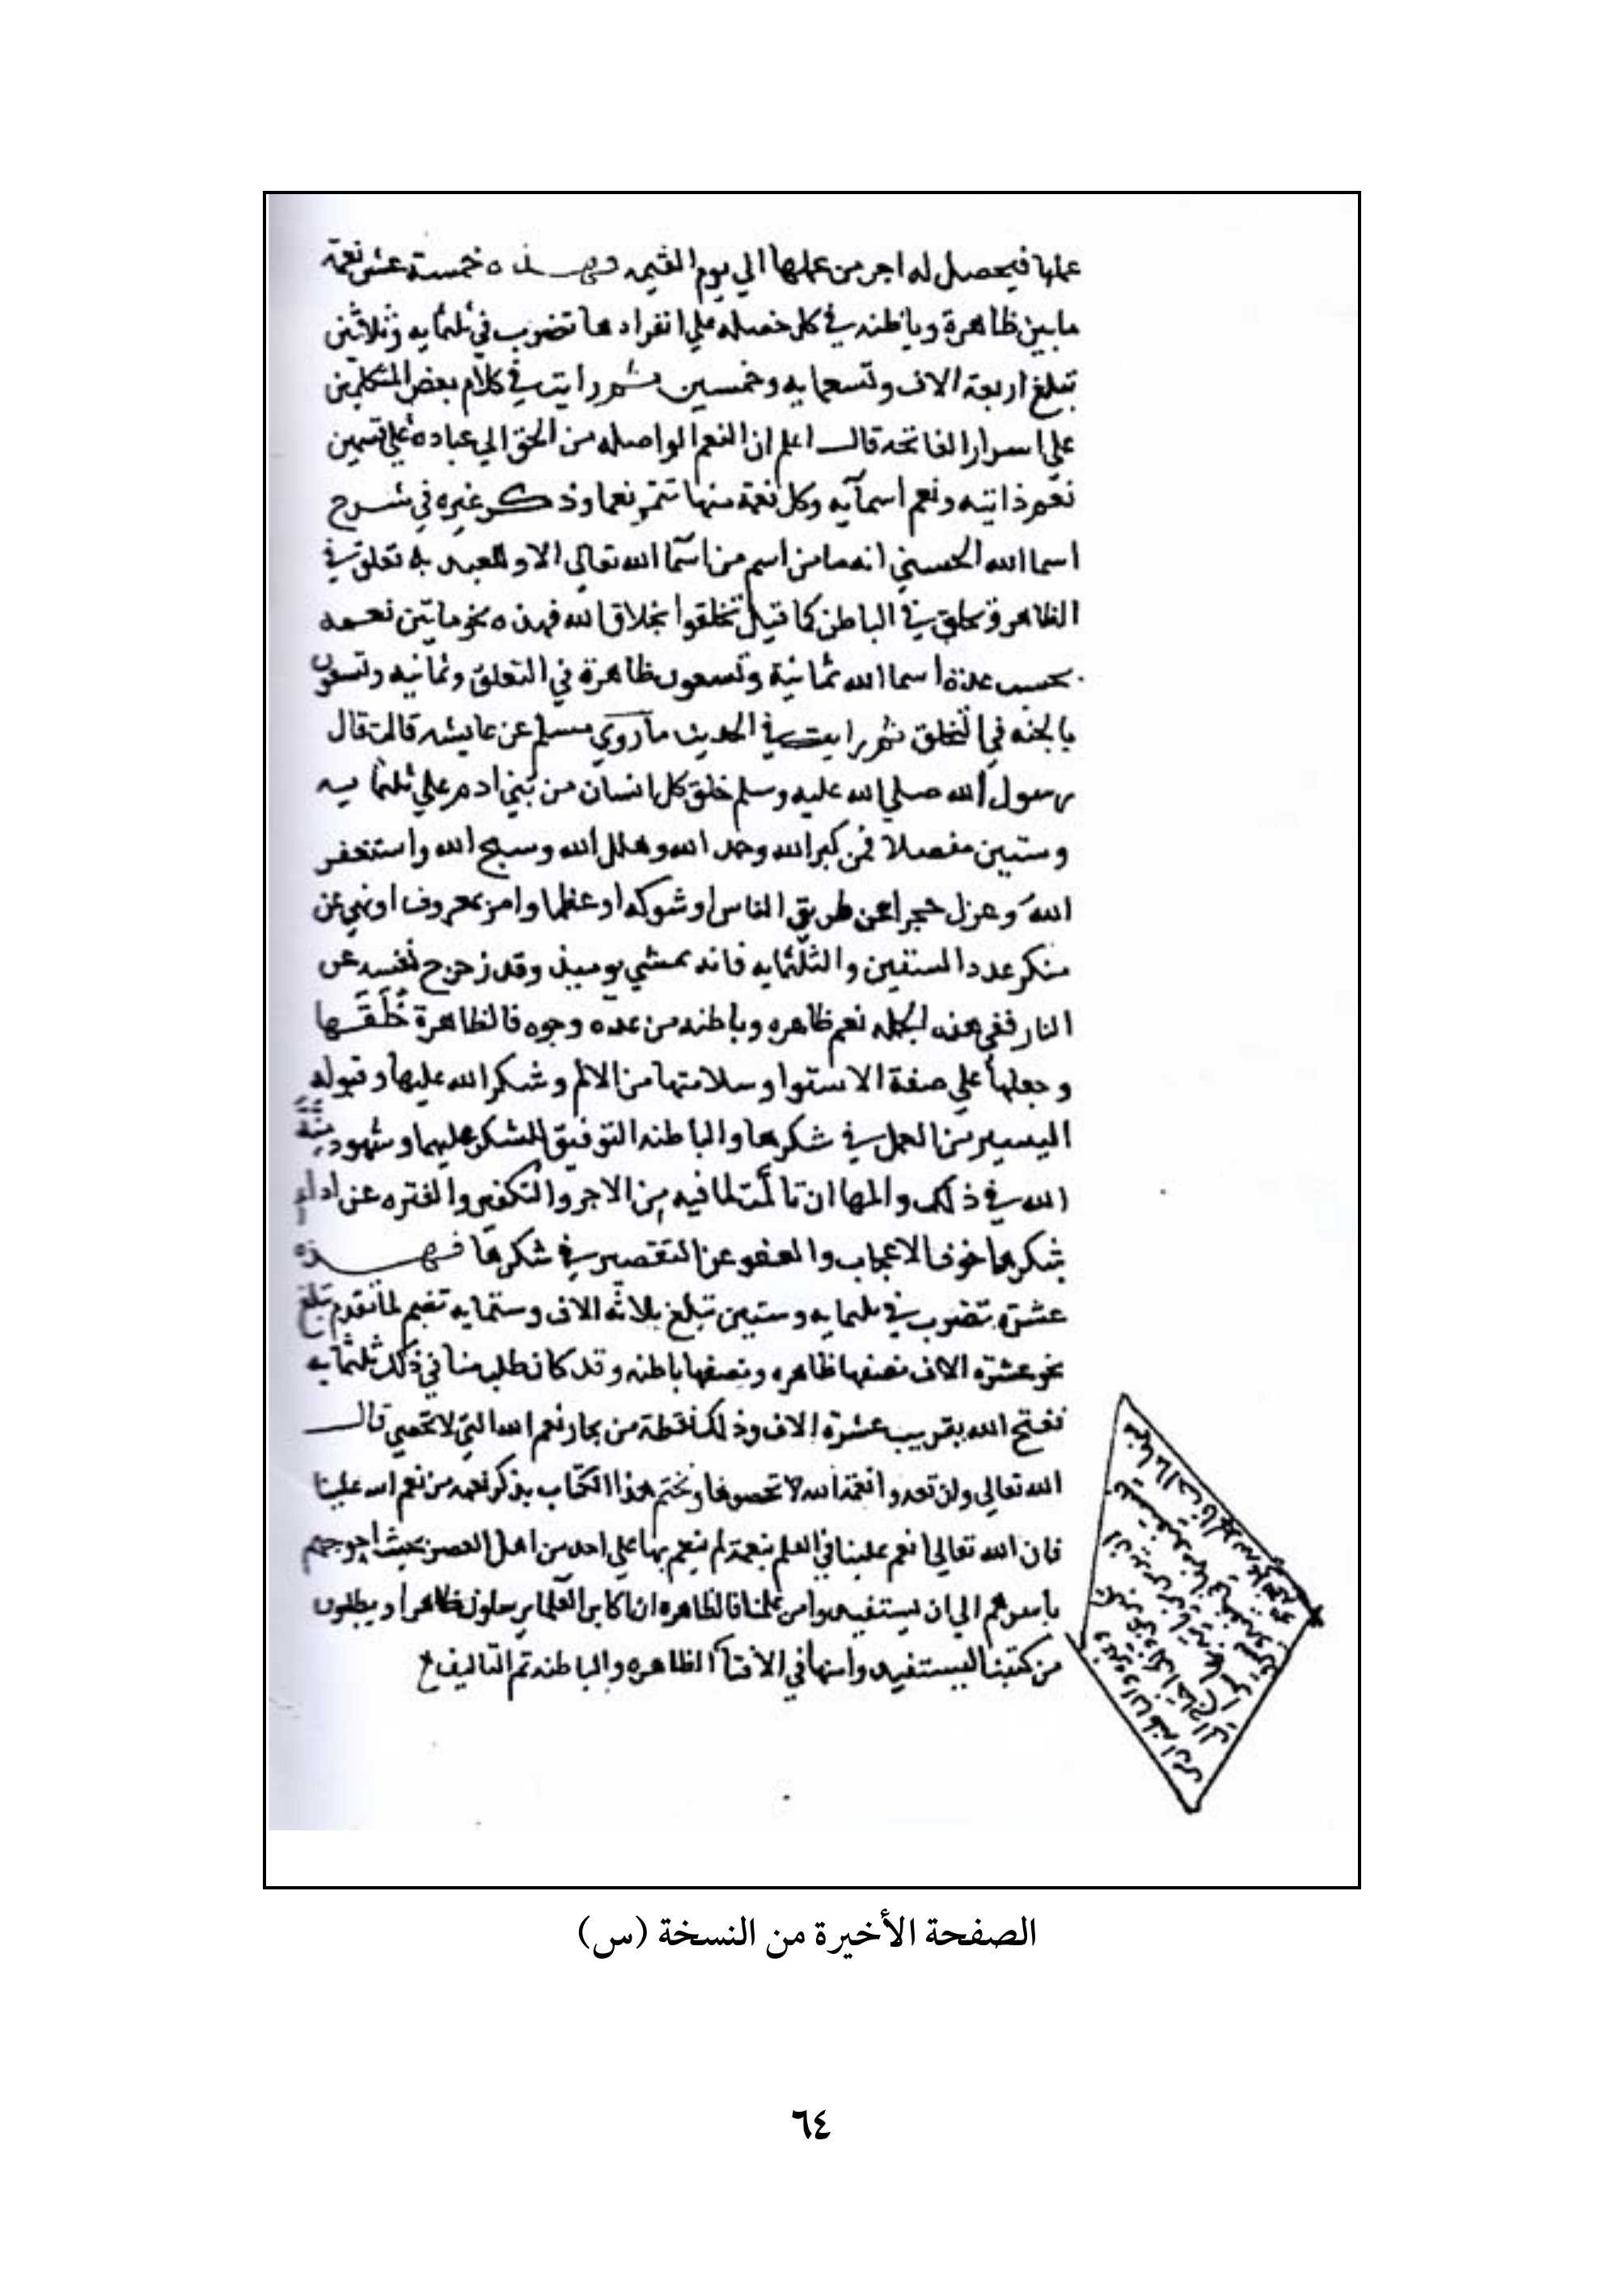 عملها فيحصل له اجر من عملها الي يوم القيمه فهذه خمسة عشر نعمة
ما بين ظاهرة وباطنه في كل خصله علي انفرادها تضرب في ثلثمايه وثلاثين
تبلغ اربعة الاف وتسعمايه وخمسين ثم رايت في كلام بعض المتكلمين
علي اسرار الفاتحه قال اعلم ان النعم الواصله من الحق الي عباده علي قسمين
نعم ذاتيه ونعم اسمآيه وكل نعمة منها تثمر نعما وذكر غيره في شرح
اسما الله الحسني انه ما من اسم من اسما الله تعالي الا وللعبد به تعلق في
الظاهر وتخلق في الباطن كما قيل تخلقوا بخلاق الله فهذه نحو ماتين نعمه
بحسب عدة اسما الله ثمانية وتسعون ظاهرة في التعلق وثمانيه وتسعون
باطنه في التخلق ثم رايت في الحديث ما روي مسلم عن عايشه قالت قال
رسول الله صلي الله عليه وسلم خلق كل انسان من بني ادم علي ثلثمايه
وستين مفصلا فمن كبر الله وحمد الله وهلل الله وسبح الله واستغفر
الله وعزل حجرا عن طريق الناس او شوكه او عظما وامر بمعروف او نهي عن
منكر عدد الستين والثلثمايه فانه يمشي يوميذ وقد زحزح نفسه عن
النار ففي هذه الجمله نعم ظاهره وباطنه من عده وجوه فالظاهرة خلقها
وجعلها علي صفة الاستوا وسلامتها من الالم وشكر الله عليها وقبوله
اليسير من العمل في شكرها والباطنه التوفيق للشكر عليها وشهود منة
الله في ذلك والهما ان تالمت لما فيه من الاجر والتكفير والفتره عن ادا
شكرها خوف الاعجاب والعفو عن التقصير في شكرها فهذه
عشرة تضرب في ثلثمايه وستين تبلغ ثلاثه الاف وستمايه تضم لما تقدم تبلغ
نحو عشرة الاف نصفها ظاهره ونصفها باطنه وقد كان طلب منا في ذلك ثلثمايه
ففتح الله بقريب عشرة الاف وذلك نقطة من بحار نعم الله التي لا تحصي قال
الله تعالي ولن تعدوا نعمة الله لا تحصوها ونختم هذا الكتاب بذكر نعمه من نعم الله علينا
فان الله تعالي انعم علينا في العلم بنعمة لم ينعم بها علي احد من اهل العصر بحيث احوجهم
باسرهم الي ان يستفيدوا من علمنا فالظاهره ان اكابر العلما يرسلون ظاهرا ويطلبون
من كتبنا ليستفيدوا منها في الافتا الظاهره والباطنه تم التاليف
الصفحة الأخيرة من النسخة (س)
٦٤